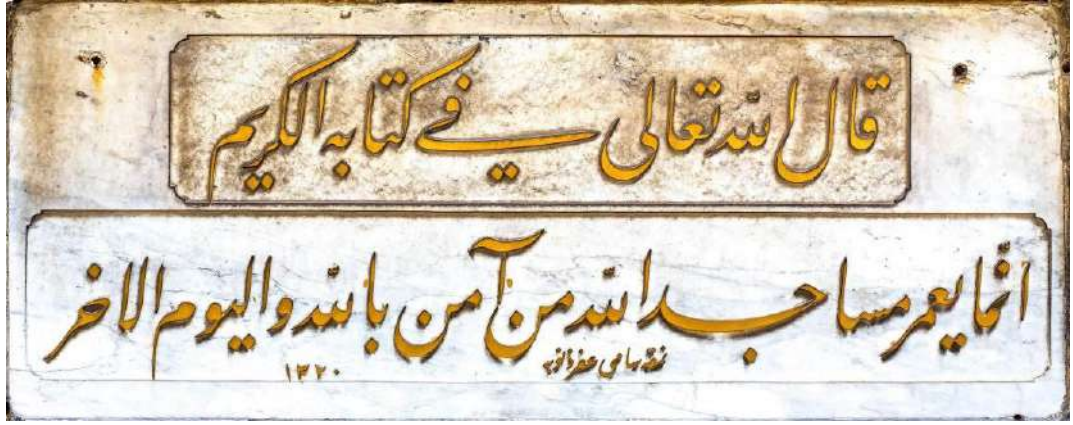 قال الله تعالى في كتابه الكريم
انما يعمر مساجد الله من آمن بالله واليوم الاخر
نمقه سامي عفر ذنوبه
١٣٢٠